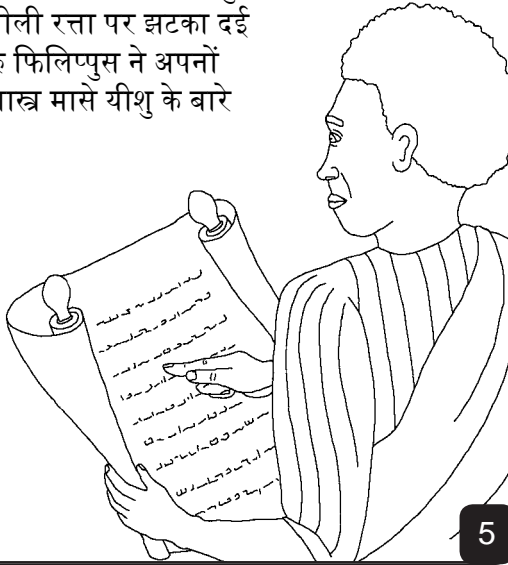 ीली रत्ता पर झटका दई
फिलिप्पुस ने अपनों
ास्त्र मासे यीशु के बारे
5